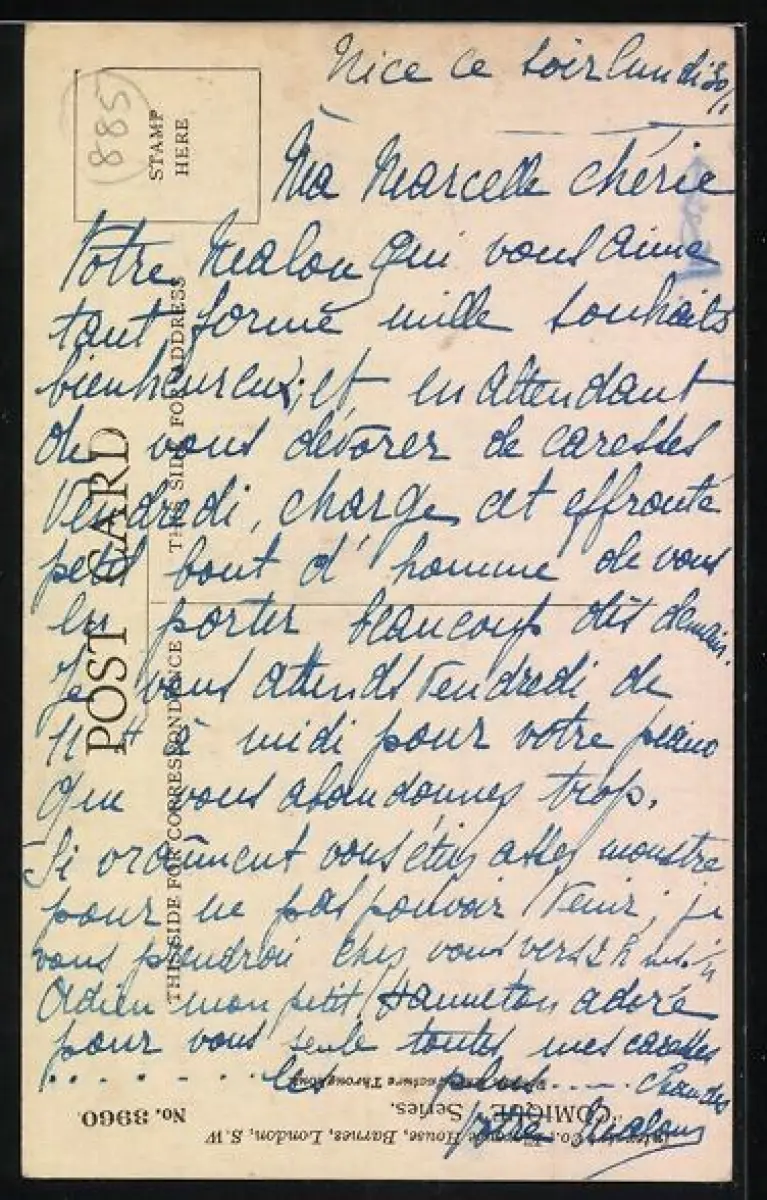 Nice ce soir lundi 30/1
Ma Marcelle chérie
Votre Malou qui vous aime
tant forme mille souhaits
bienheureux; et en attendant
de vous dévorer de caresses
Vendredi, charge cet effronté
petit bout d'homme de vous
en porter beaucoup dès demain.
Je vous attends Vendredi de
11 H à midi pour votre piano
que vous abandonnez trop.
Si vraiment vous étiez assez monstre
pour ne pas pouvoir venir; je
vous prendrai chez vous vers 2 h
Adieu mon petit Hanneton adoré
pour vous seule toutes mes caresses
. . . . . . . les plus . . . . . chaudes
Votre Malou
(885)
STAMP
HERE
POST CARD
THIS SIDE FOR ADDRESS
THIS SIDE FOR CORRESPONDENCE
"COMIQUE" Series.
No. 3960.
House, Barnes, London, S.W